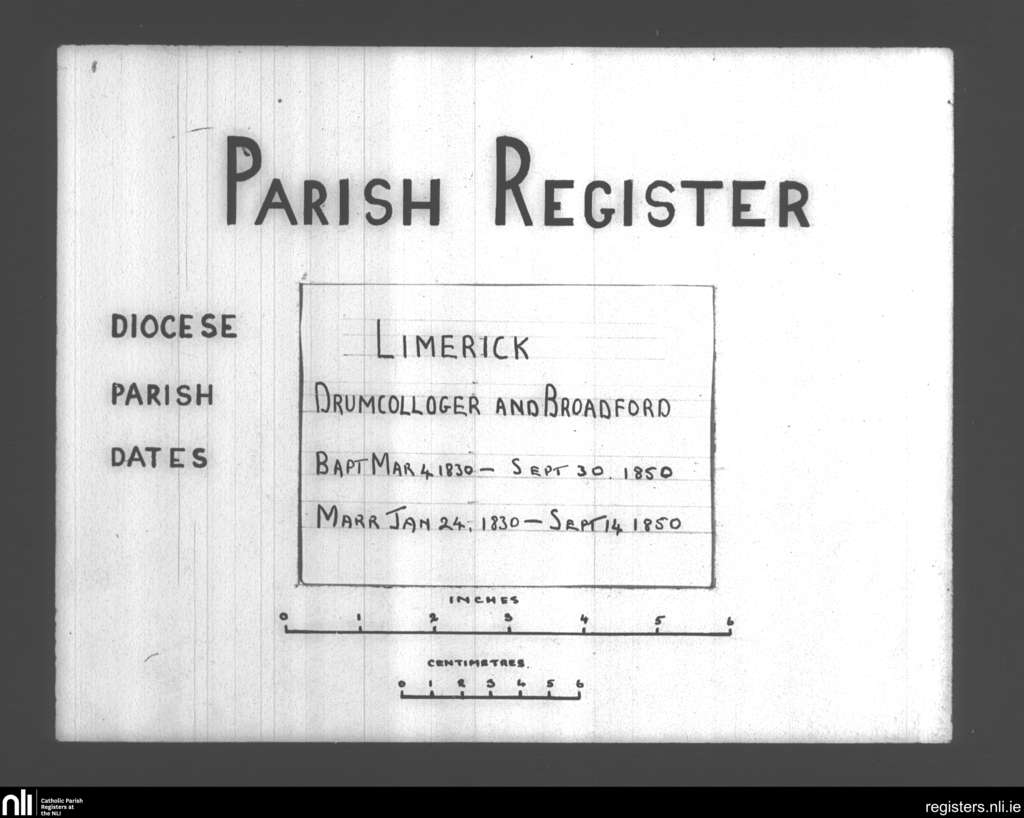 PARISH REGISTER
DIOCESE LIMERICK
PARISH DRUMCOLLOGER AND BROADFORD
DATES BAPT MAR 4 1830 – SEPT 30. 1850
MARR JAN 24. 1830 – SEPT 14 1850
INCHES
0 1 2 3 4 5 6
CENTIMETRES.
0 1 2 3 4 5 6
nli Catholic Parish
Registers at
the NLI
registers.nli.ie